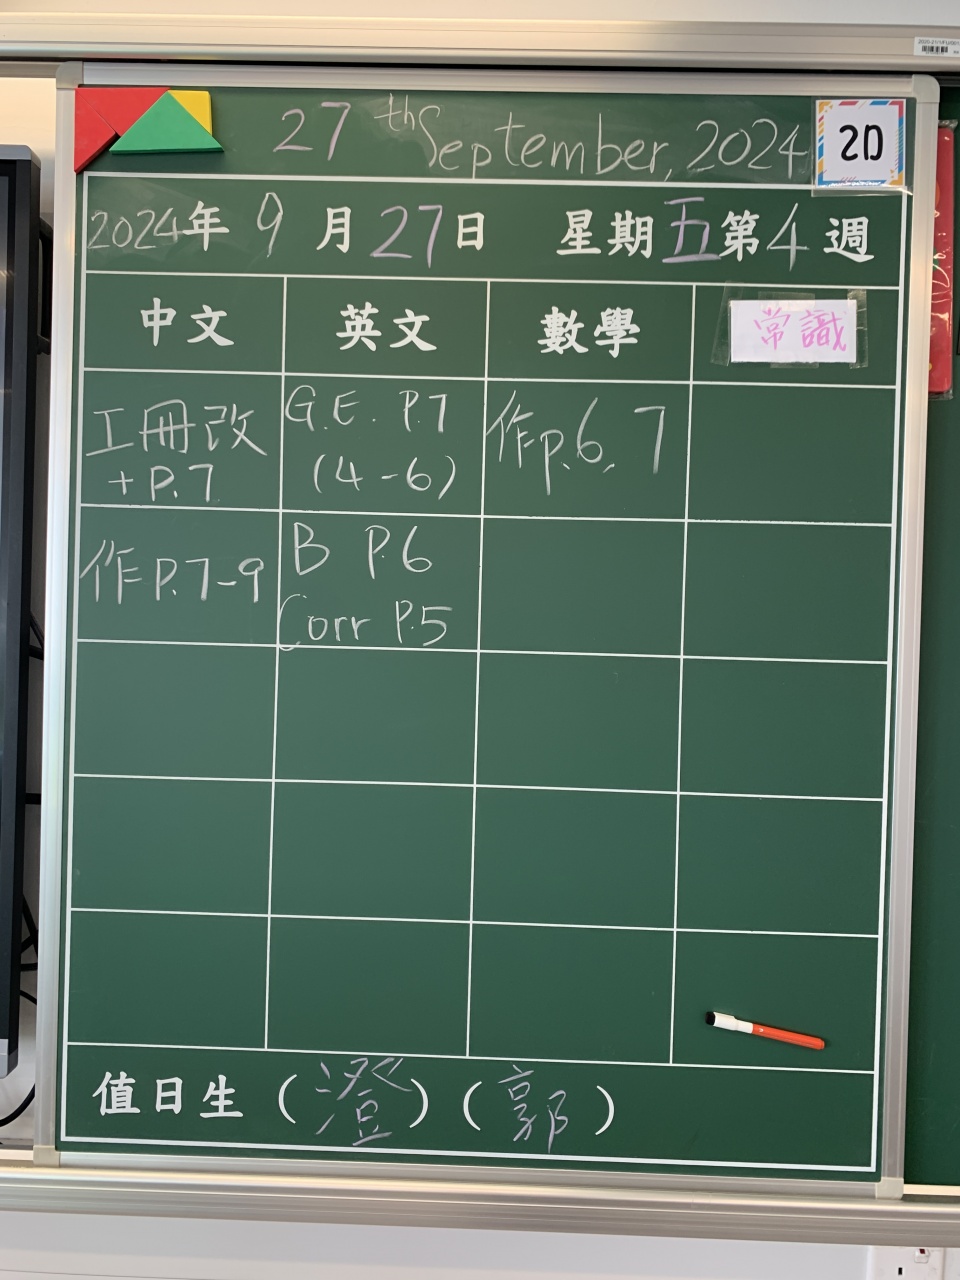 27th September, 2024
2D
2024年 9 月 27 日 星期五第4週
中文 英文 數學 常識
工冊改
+ P.7
G.E. P.7
(4-6)
作p.6, 7
作 P.7-9
B P.6
Corr P.5
值日生 (澄) (郭)